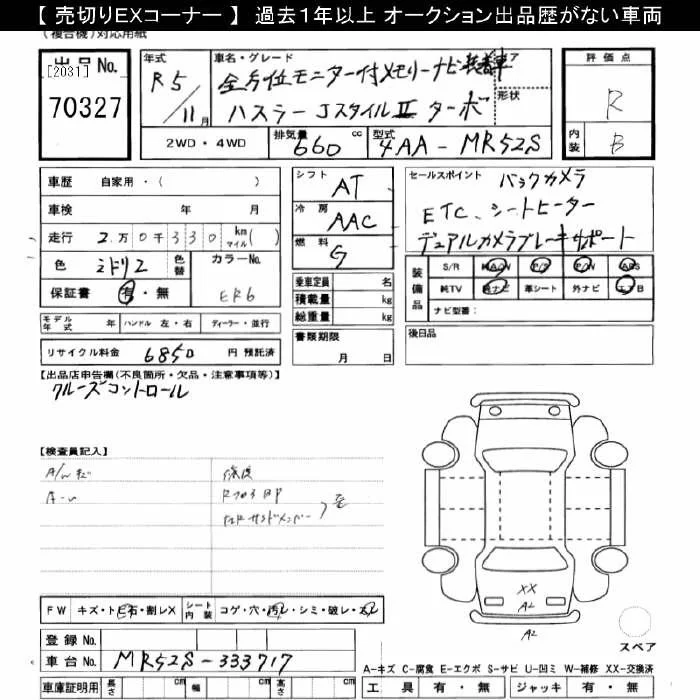 【 売切りEXコーナー 】 過去1年以上 オークション出品歴がない車両
(複合機)対応用紙
出品No.
[2031]
70327
年式
R5/11月
車名・グレード
全方位モニター付メモリーナビ装着車
ハスラー JスタイルⅡ ターボ
ドア
形状
2WD・4WD
排気量 660 cc
型式 4AA-MR52S
評価点
R
内装 B
車歴 自家用・( )
車検 年 月
走行 2万0千330 km マイル( )
色 ミドリ2 色替
カラーNo. ER6
保証書 有・無
シフト AT
冷房 AAC
燃料 G
乗車定員 名
積載量 kg
総重量 kg
セールスポイント バックカメラ
ETC、シートヒーター
デュアルカメラブレーキサポート
装備品 S/R MA/W P/S P/W ABS
純TV 純ナビ 革シート 外ナビ エアB
ナビ型番:
モデル年式 年 ハンドル 左・右 ディーラー・並行
書類期限
月 日
後日品
リサイクル料金 6850 円 預託済
【出品店申告欄(不良箇所・欠品・注意事項等)】
クルーズコントロール
【検査員記入】
修復
FW キズ・ト飛石・割レX
シート内装 コゲ・穴・汚レ・シミ・破レ・スレ
XX
A2
A2
スペア
登録No.
車台No. MR52S-333717
A-キズ C-腐食 E-エクボ S-サビ U-凹ミ W-補修 XX-交換済
車庫証明用 長さ cm 幅 cm 高さ cm
工具 有・無 ジャッキ 有・無